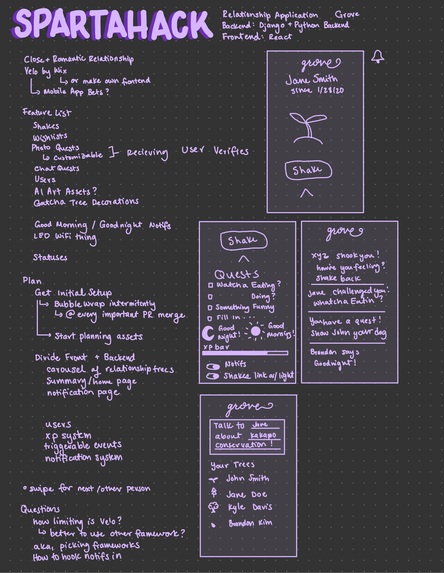 SPARTAHACK
Relationship Application Grove
Backend: Django + Python Backend
Frontend: React
Close + Romantic Relationship
Velo by Wix
↳ or make own frontend
↳ Mobile App Bets?
Feature List
Shakes
Wishlists
Photo Quests
↳ customizable
Recieving User Verifies
Chat Quests
Users
AI Art Assets?
Gatcha Tree Decorations
Good Morning / Goodnight Notifs
LED WiFi thing
Statuses
Plan
Get Initial Setup
↳ Bubblewrap intermitently
↳ @ every important PR merge
↳ Start planning assets
Divide Front + Backend
carousel of relationship trees
Summary/home page
notification page
users
xp system
triggerable events
notification system
* swipe for next/other person
Questions
how limiting is Velo?
↳ better to use other framework?
aka, picking frameworks
How to hook notifs in
grove
Jane Smith
since 1/28/20
Shake
Shake
Quests
Watcha Eating?
Doing?
Something Funny
Fill in...
Good night!
Good morning!
XP bar
Notifs
Shakee link w/light
grove
xyz shook you!
how're you feeling?
shake back
Jane challenged you:
whatcha Eatin'?
You have a quest!
Show John your dog
Brandon says
Goodnight!
grove
Talk to Jane
about kakapo
conservation!
Your Trees
John Smith
Jane Doe
Kyle Davis
Brandon Kim